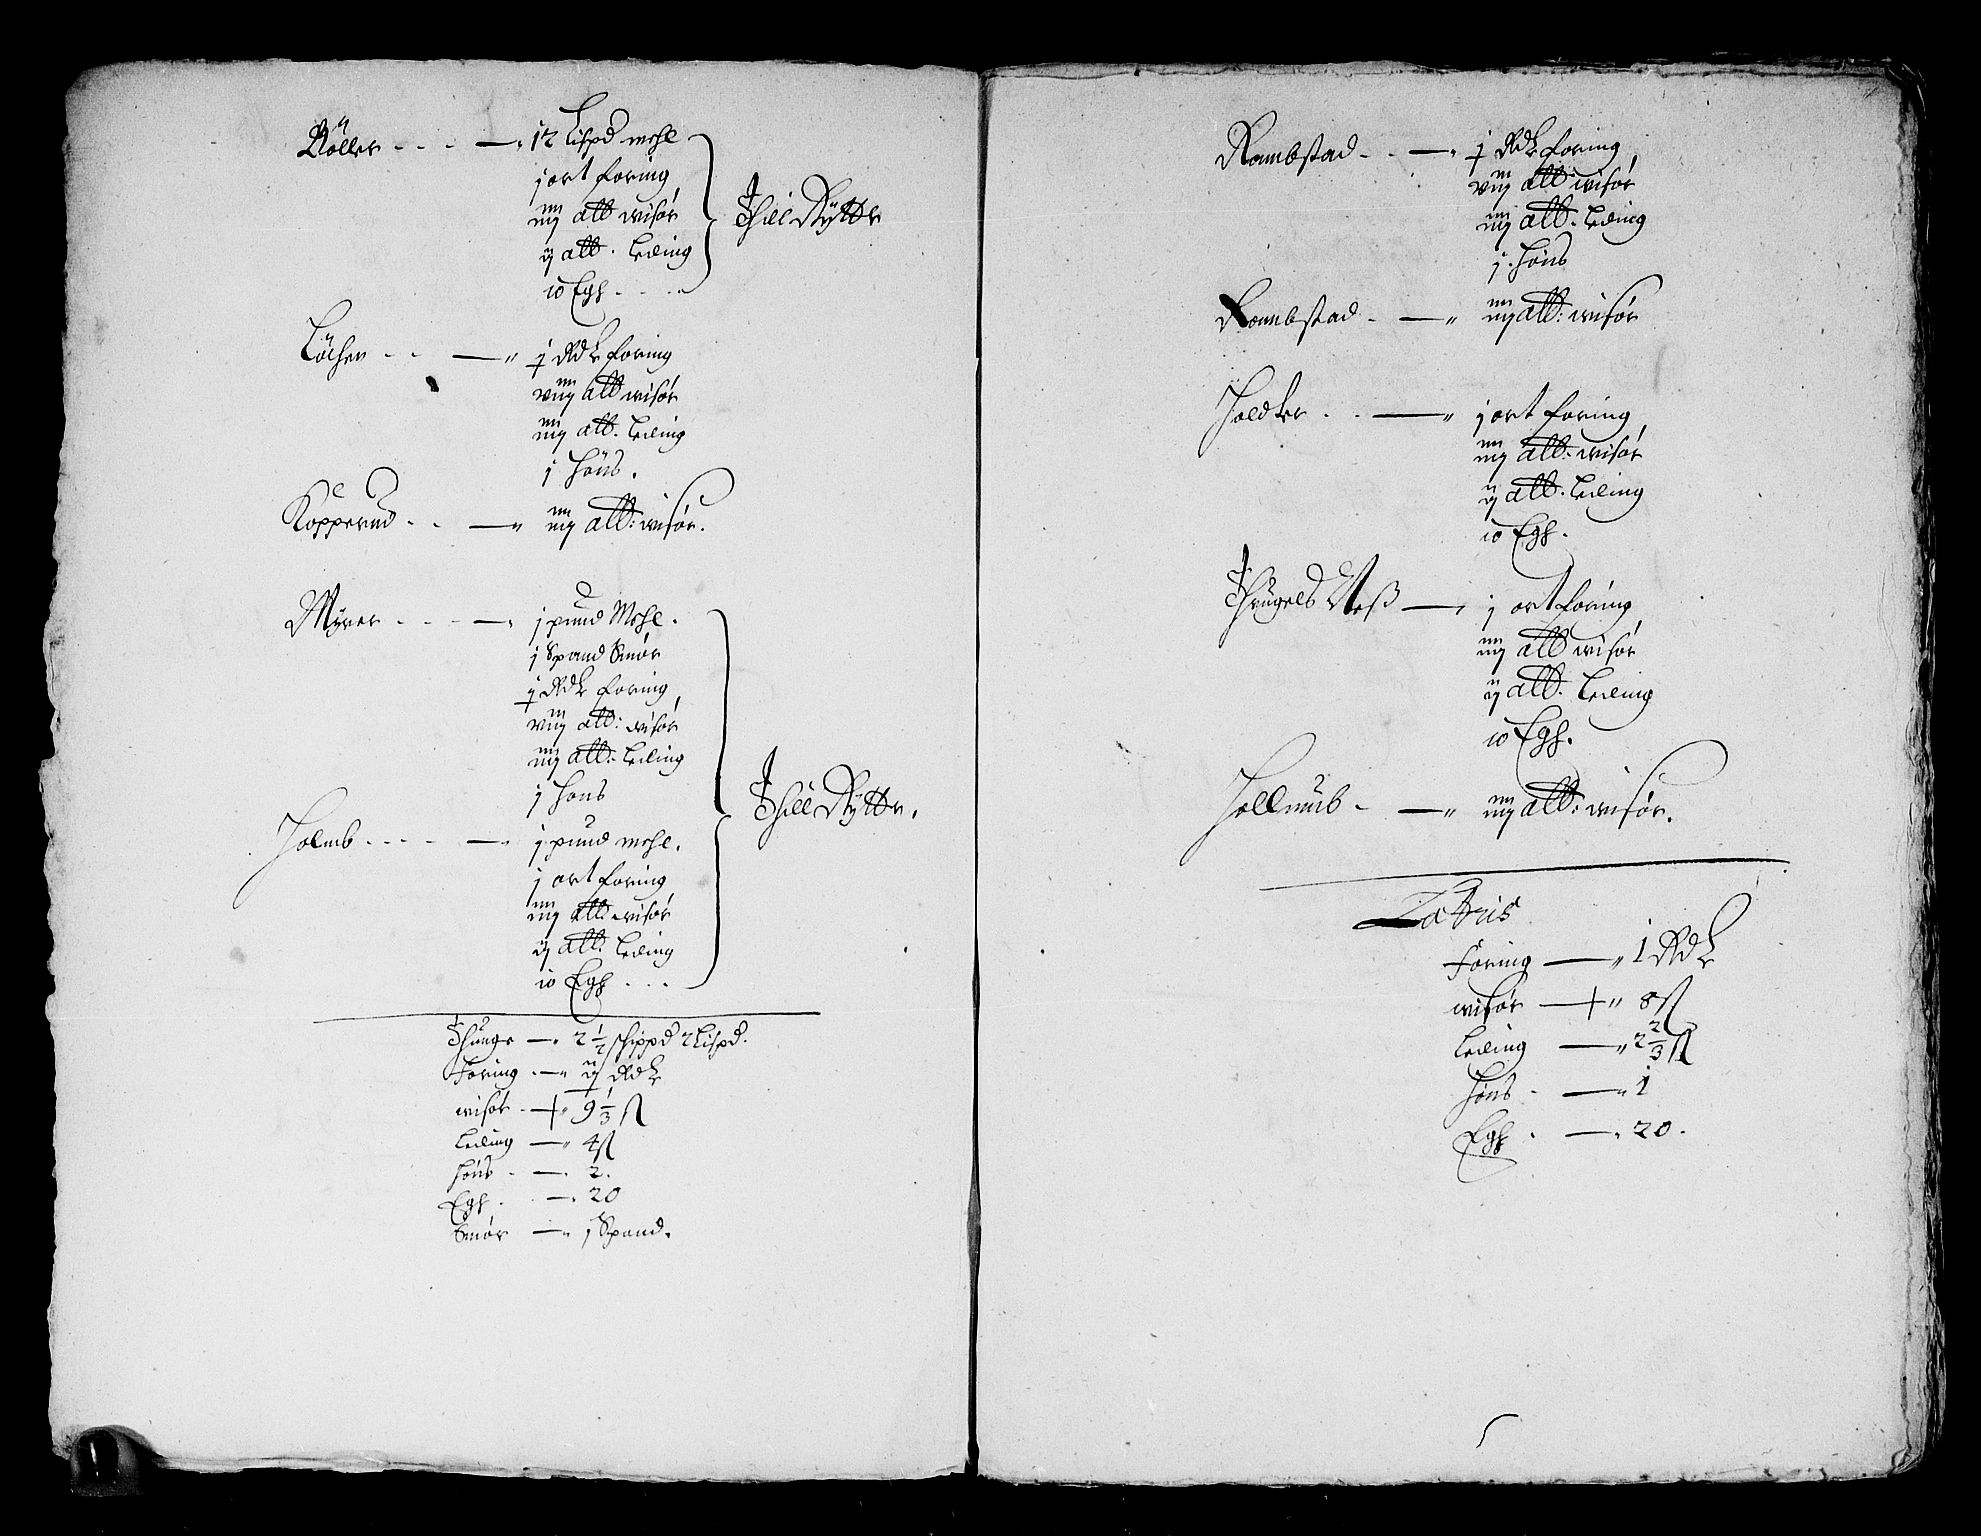 Röller - - - — 12 Lispd mehl
j ort foring
iiij alb wisör
ij alb. leding
10 Egh - - -
Thill Rÿttr
Löchen - - — j Rdr foring
viij alb wisör
iiij alb. leding
j höns.
Kopperud - - — iiij alb: wisör.
Mÿrer - - - — j pund Mehl.
j Spand Smör
j Rdr foring
viij alb: wisör
iiij alb: leding
j höns
Thill Rÿttr.
Holmb - - - — j pund mehl.
j ort foring
iiij alb: wisör
ij alb. leding
10 Egh - - -
Thunge — 2 1/2 schippd 2 Lispd.
Foring - — ij Rdr
wisör - — 9 1/3 ß
Leding — 4 ß
höns - — 2.
Egh - — 20
Smör — j Spand.
Rambstad - - — j Rdr foring
viij alb wisör
iiij alb. leding
j. höns
Rambstad - — iiij alb: wisör
Holdter - - — j ort foring
iiij alb: wisör
ij alb. leding
10 Egh.
Thrugels Neß — j ort foring
iiij alb wisör
ij alb. leding
10 Egh.
Hollmb - — iiij alb: wisör.
Latris
Foring — 1 Rdr
wisör — 8 ß
Leding — 2 2/3 ß
höns - — 1
Egh - — 20.